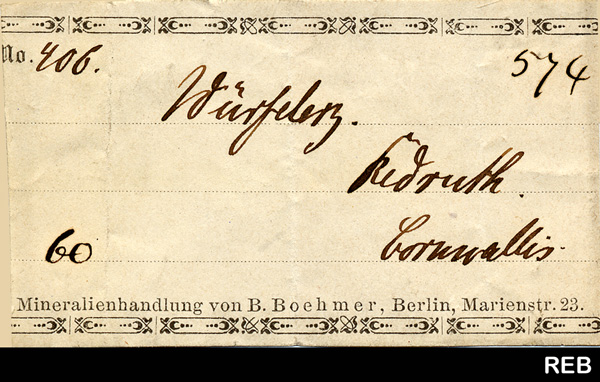 No. 406.
574
Würfelerz.
Redruth.
Cornwallis.
60
Mineralienhandlung von B. Boehmer, Berlin, Marienstr. 23.
REB